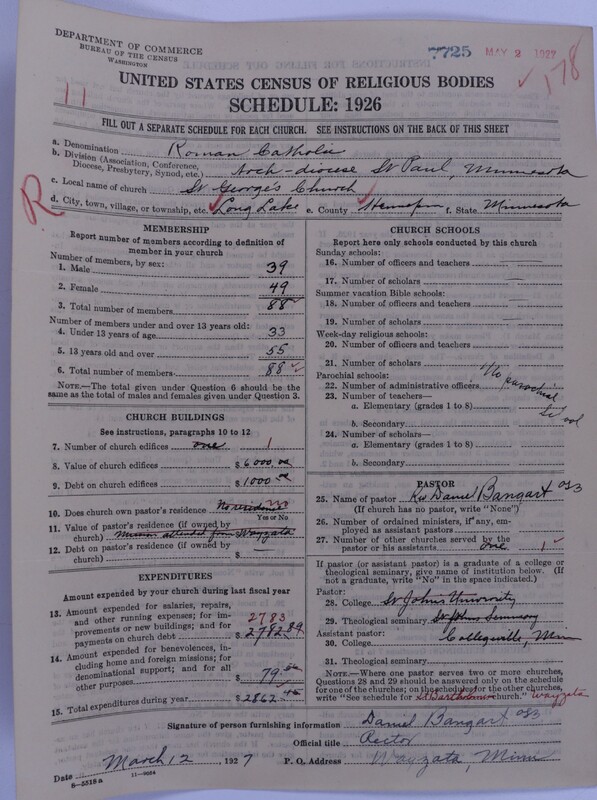 DEPARTMENT OF COMMERCE
BUREAU OF THE CENSUS
WASHINGTON
7725 MAY 2 1927
178
UNITED STATES CENSUS OF RELIGIOUS BODIES
SCHEDULE: 1926
11
FILL OUT A SEPARATE SCHEDULE FOR EACH CHURCH. SEE INSTRUCTIONS ON THE BACK OF THIS SHEET
a. Denomination Roman Catholic
b. Division (Association, Conference, Diocese, Presbytery, Synod, etc.) Arch-diocese St Paul, Minnesota
c. Local name of church St George's Church
R
d. City, town, village, or township, etc. Long Lake e. County Hennepin f. State Minnesota
MEMBERSHIP
Report number of members according to definition of
member in your church
Number of members, by sex:
1. Male 39
2. Female 49
3. Total number of members 88
Number of members under and over 13 years old:
4. Under 13 years of age 33
5. 13 years old and over 55
6. Total number of members 88
NOTE.—The total given under Question 6 should be
same as the total of males and females given under Question 3.
CHURCH BUILDINGS
See instructions, paragraphs 10 to 12
7. Number of church edifices one 1
8. Value of church edifices $ 6000.00
9. Debt on church edifices $ 1000
10. Does church own pastor's residence No residence no
Yes or No
11. Value of pastor's residence (if owned by
church) Mission attended from Wayzata
12. Debt on pastor's residence (if owned by
church) $ —
EXPENDITURES
Amount expended by your church during last fiscal year
13. Amount expended for salaries, repairs,
and other running expenses; for im-
provements or new buildings; and for
payments on church debt 2783 $ 2782.89
14. Amount expended for benevolences, in-
cluding home and foreign missions; for
denominational support; and for all
other purposes $ 79.
15. Total expenditures during year $ 2862.
CHURCH SCHOOLS
Report here only schools conducted by this church
Sunday schools:
16. Number of officers and teachers
17. Number of scholars
Summer vacation Bible schools:
18. Number of officers and teachers
19. Number of scholars
Week-day religious schools:
20. Number of officers and teachers
21. Number of scholars
Parochial schools: No parochial school
22. Number of administrative officers
23. Number of teachers—
a. Elementary (grades 1 to 8)
b. Secondary
24. Number of scholars—
a. Elementary (grades 1 to 8)
b. Secondary
PASTOR
25. Name of pastor Rev Daniel Bangart OSB
(If church has no pastor, write "None")
26. Number of ordained ministers, if any, em-
ployed as assistant pastors
27. Number of other churches served by the
pastor or his assistants one 1
If pastor (or assistant pastor) is a graduate of a college or
theological seminary, give name of institution below. (If
not a graduate, write "No" in the space indicated.)
Pastor:
28. College St Johns University
29. Theological seminary St Johns Seminary
Assistant pastor:
30. College Collegeville, Minn
31. Theological seminary
NOTE.—Where one pastor serves two or more churches,
Questions 28 and 29 should be answered only on the schedule
for one of the churches; on the schedules for the other churches,
write "See schedule for St Bartholomew church." Wayzata
Signature of person furnishing information Daniel Bangart OSB
Official title Rector
Date March 12 1927 P. O. Address Wayzata, Minn
8-5518 a